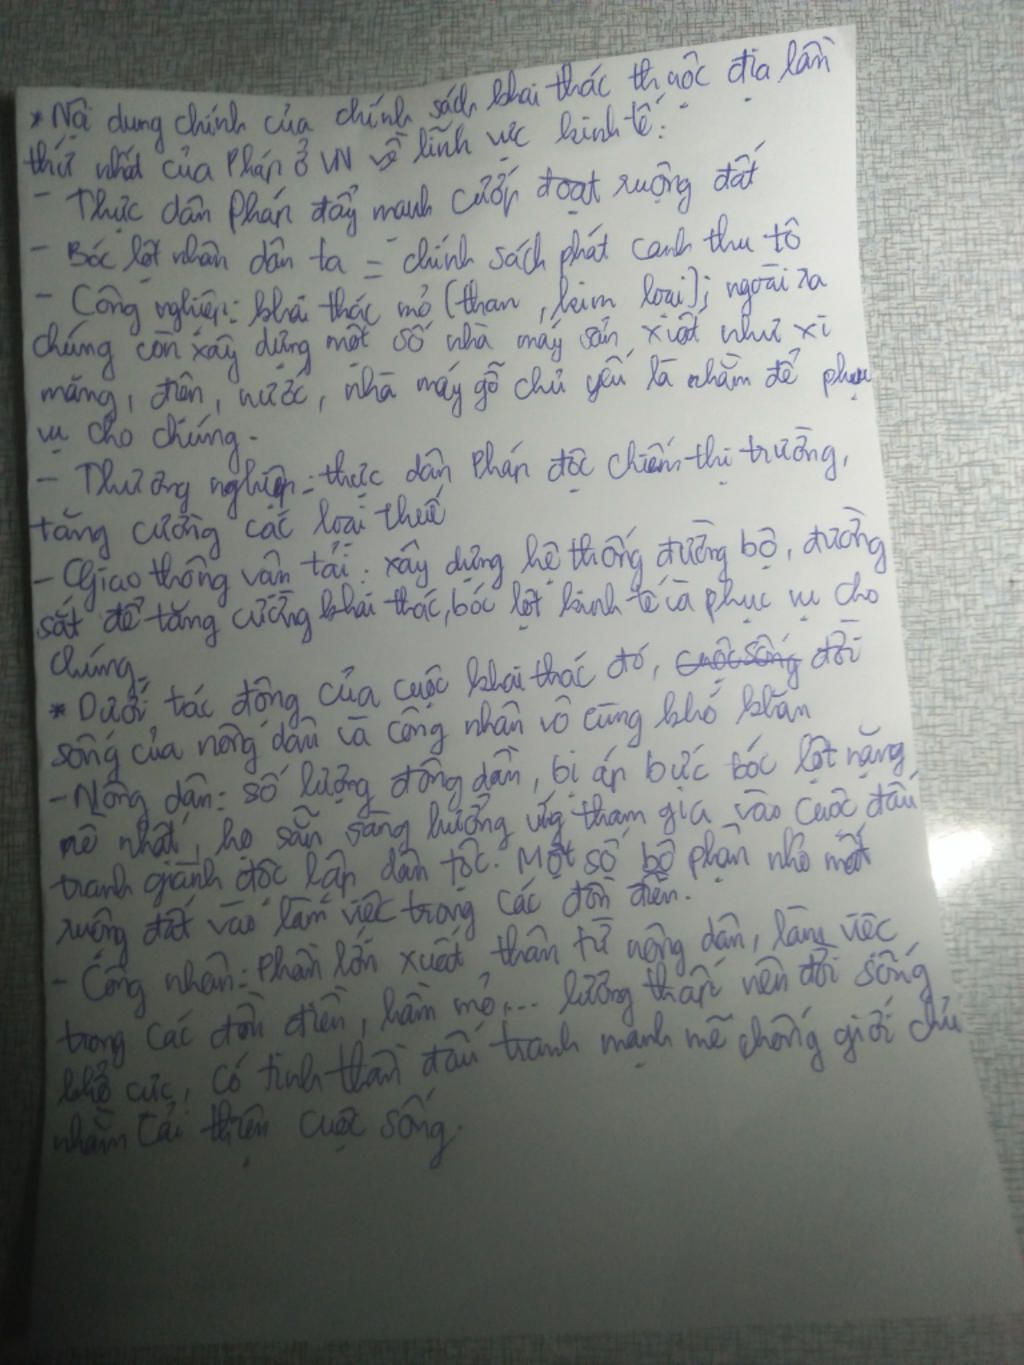 * Nội dung chính của chính sách khai thác thuộc địa lần
thứ nhất của Pháp ở VN về lĩnh vực kinh tế:
- Thực dân Pháp đẩy mạnh cướp đoạt ruộng đất
- Bóc lột nhân dân ta = chính sách phát canh thu tô
- Công nghiệp: khai thác mỏ (than, kim loại); ngoài ra
chúng còn xây dựng một số nhà máy sản xuất như xi
măng, điện, nước, nhà máy gỗ chủ yếu là nhằm để phục
vụ cho chúng.
- Thương nghiệp: thực dân Pháp độc chiếm thị trường,
tăng cường các loại thuế
- Giao thông vận tải: xây dựng hệ thống đường bộ, đường
sắt để tăng cường khai thác, bóc lột kinh tế và phục vụ cho
chúng.
* Dưới tác động của cuộc khai thác đó, cuộc sống đời
sống của nông dân và công nhân vô cùng khó khăn
- Nông dân: số lượng đông dần, bị áp bức bóc lột nặng
nề nhất, họ sẵn sàng hưởng ứng tham gia vào cuộc đấu
tranh giành độc lập dân tộc. Một số bộ phận nhỏ mất
ruộng đất vào làm việc trong các đồn điền.
- Công nhân: Phần lớn xuất thân từ nông dân, làm việc
trong các đồn điền, hầm mỏ,... lương thấp nên đời sống
khổ cực, có tinh thần đấu tranh mạnh mẽ chống giới chủ
nhằm cải thiện cuộc sống.